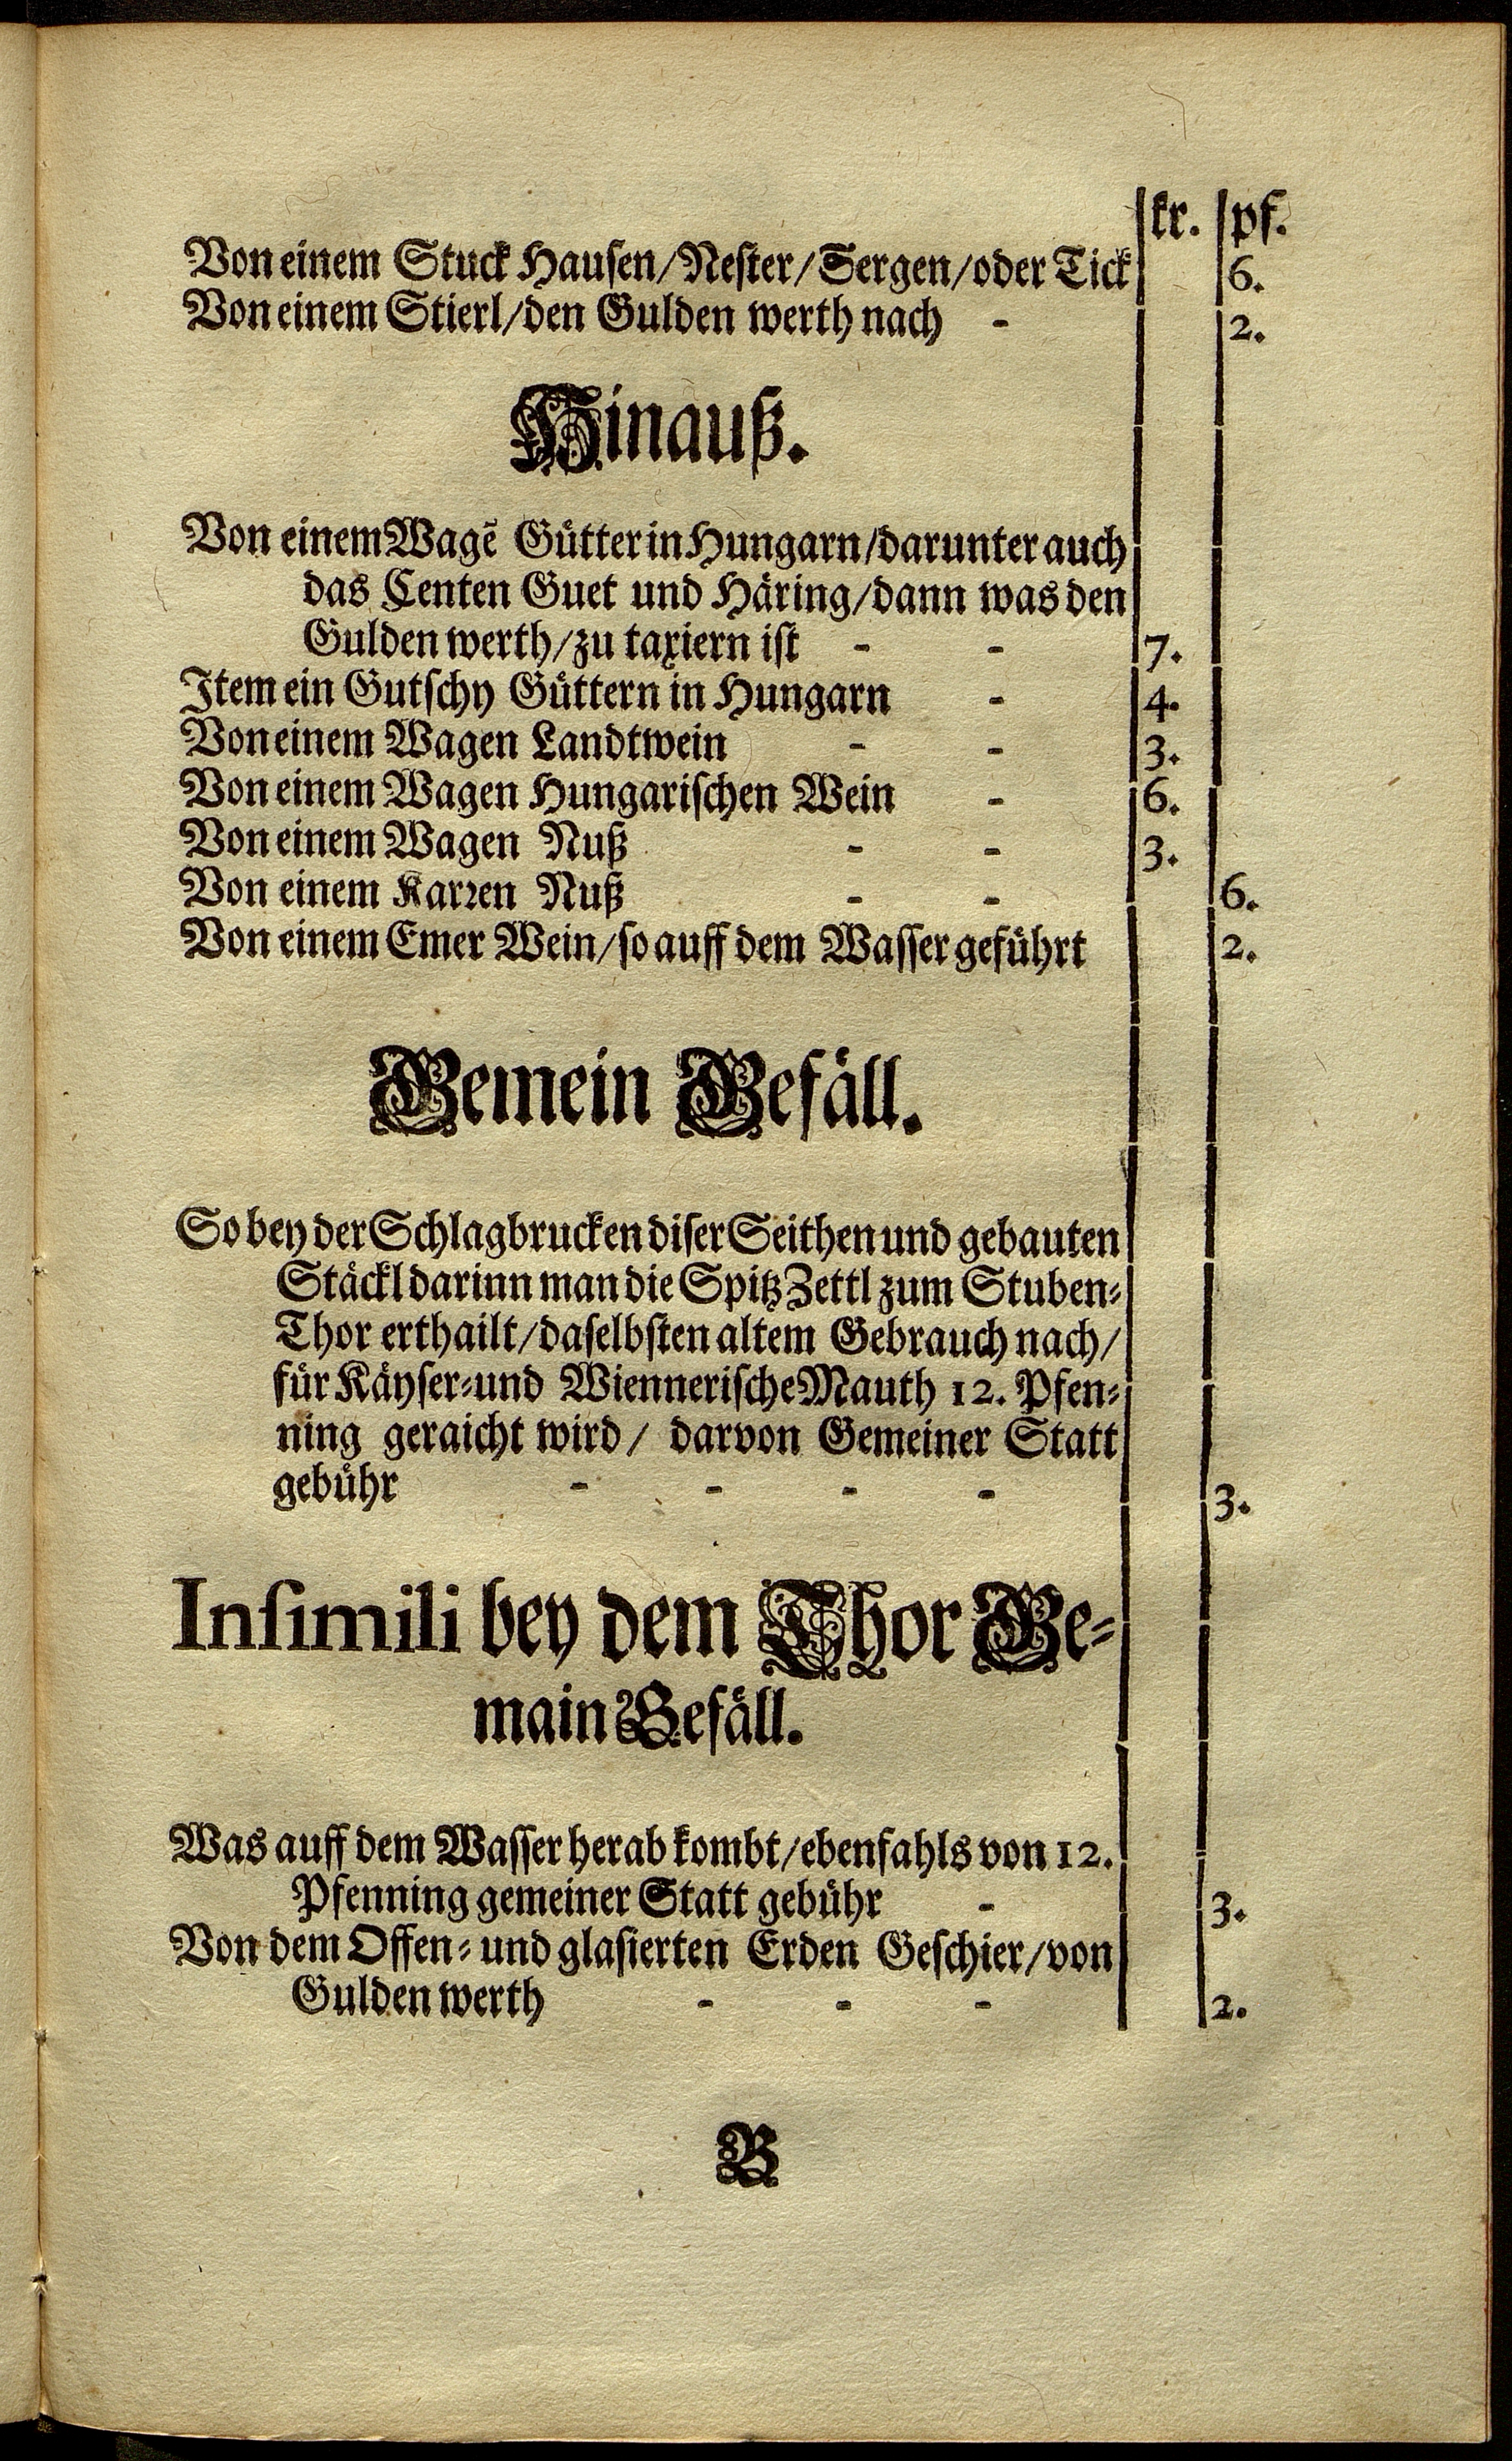 kr. pf.
Von einem Stuck Hausen/Nester/Sergen/oder Tick 6.
Von einem Stierl/den Gulden werth nach - 2.
Hinauß.
Von einem Wagẽ Gütter in Hungarn/darunter auch
das Centen Guet und Häring/dann was den
Gulden werth/zu taxiern ist - - 7.
Item ein Gutschy Güttern in Hungarn - 4.
Von einem Wagen Landtwein - - 3.
Von einem Wagen Hungarischen Wein - 6.
Von einem Wagen Nuß - - 3.
Von einem Karren Nuß - - 6.
Von einem Emer Wein/so auff dem Wasser geführt 2.
Gemein Gefäll.
So bey der Schlagbrucken diser Seithen und gebauten
Stäckl darinn man die Spitz Zettl zum Stuben-
Thor erthailt/daselbsten altem Gebrauch nach/
für Käyser-und Wiennerische Mauth 12. Pfen-
ning geraicht wird/ darvon Gemeiner Statt
gebühr - - - - 3.
Insimili bey dem Thor Ge-
main Gefäll.
Was auff dem Wasser herab kombt/ebenfahls von 12.
Pfenning gemeiner Statt gebühr - 3.
Von dem Offen- und glasierten Erden Geschier/von
Gulden werth - - - 2.
B